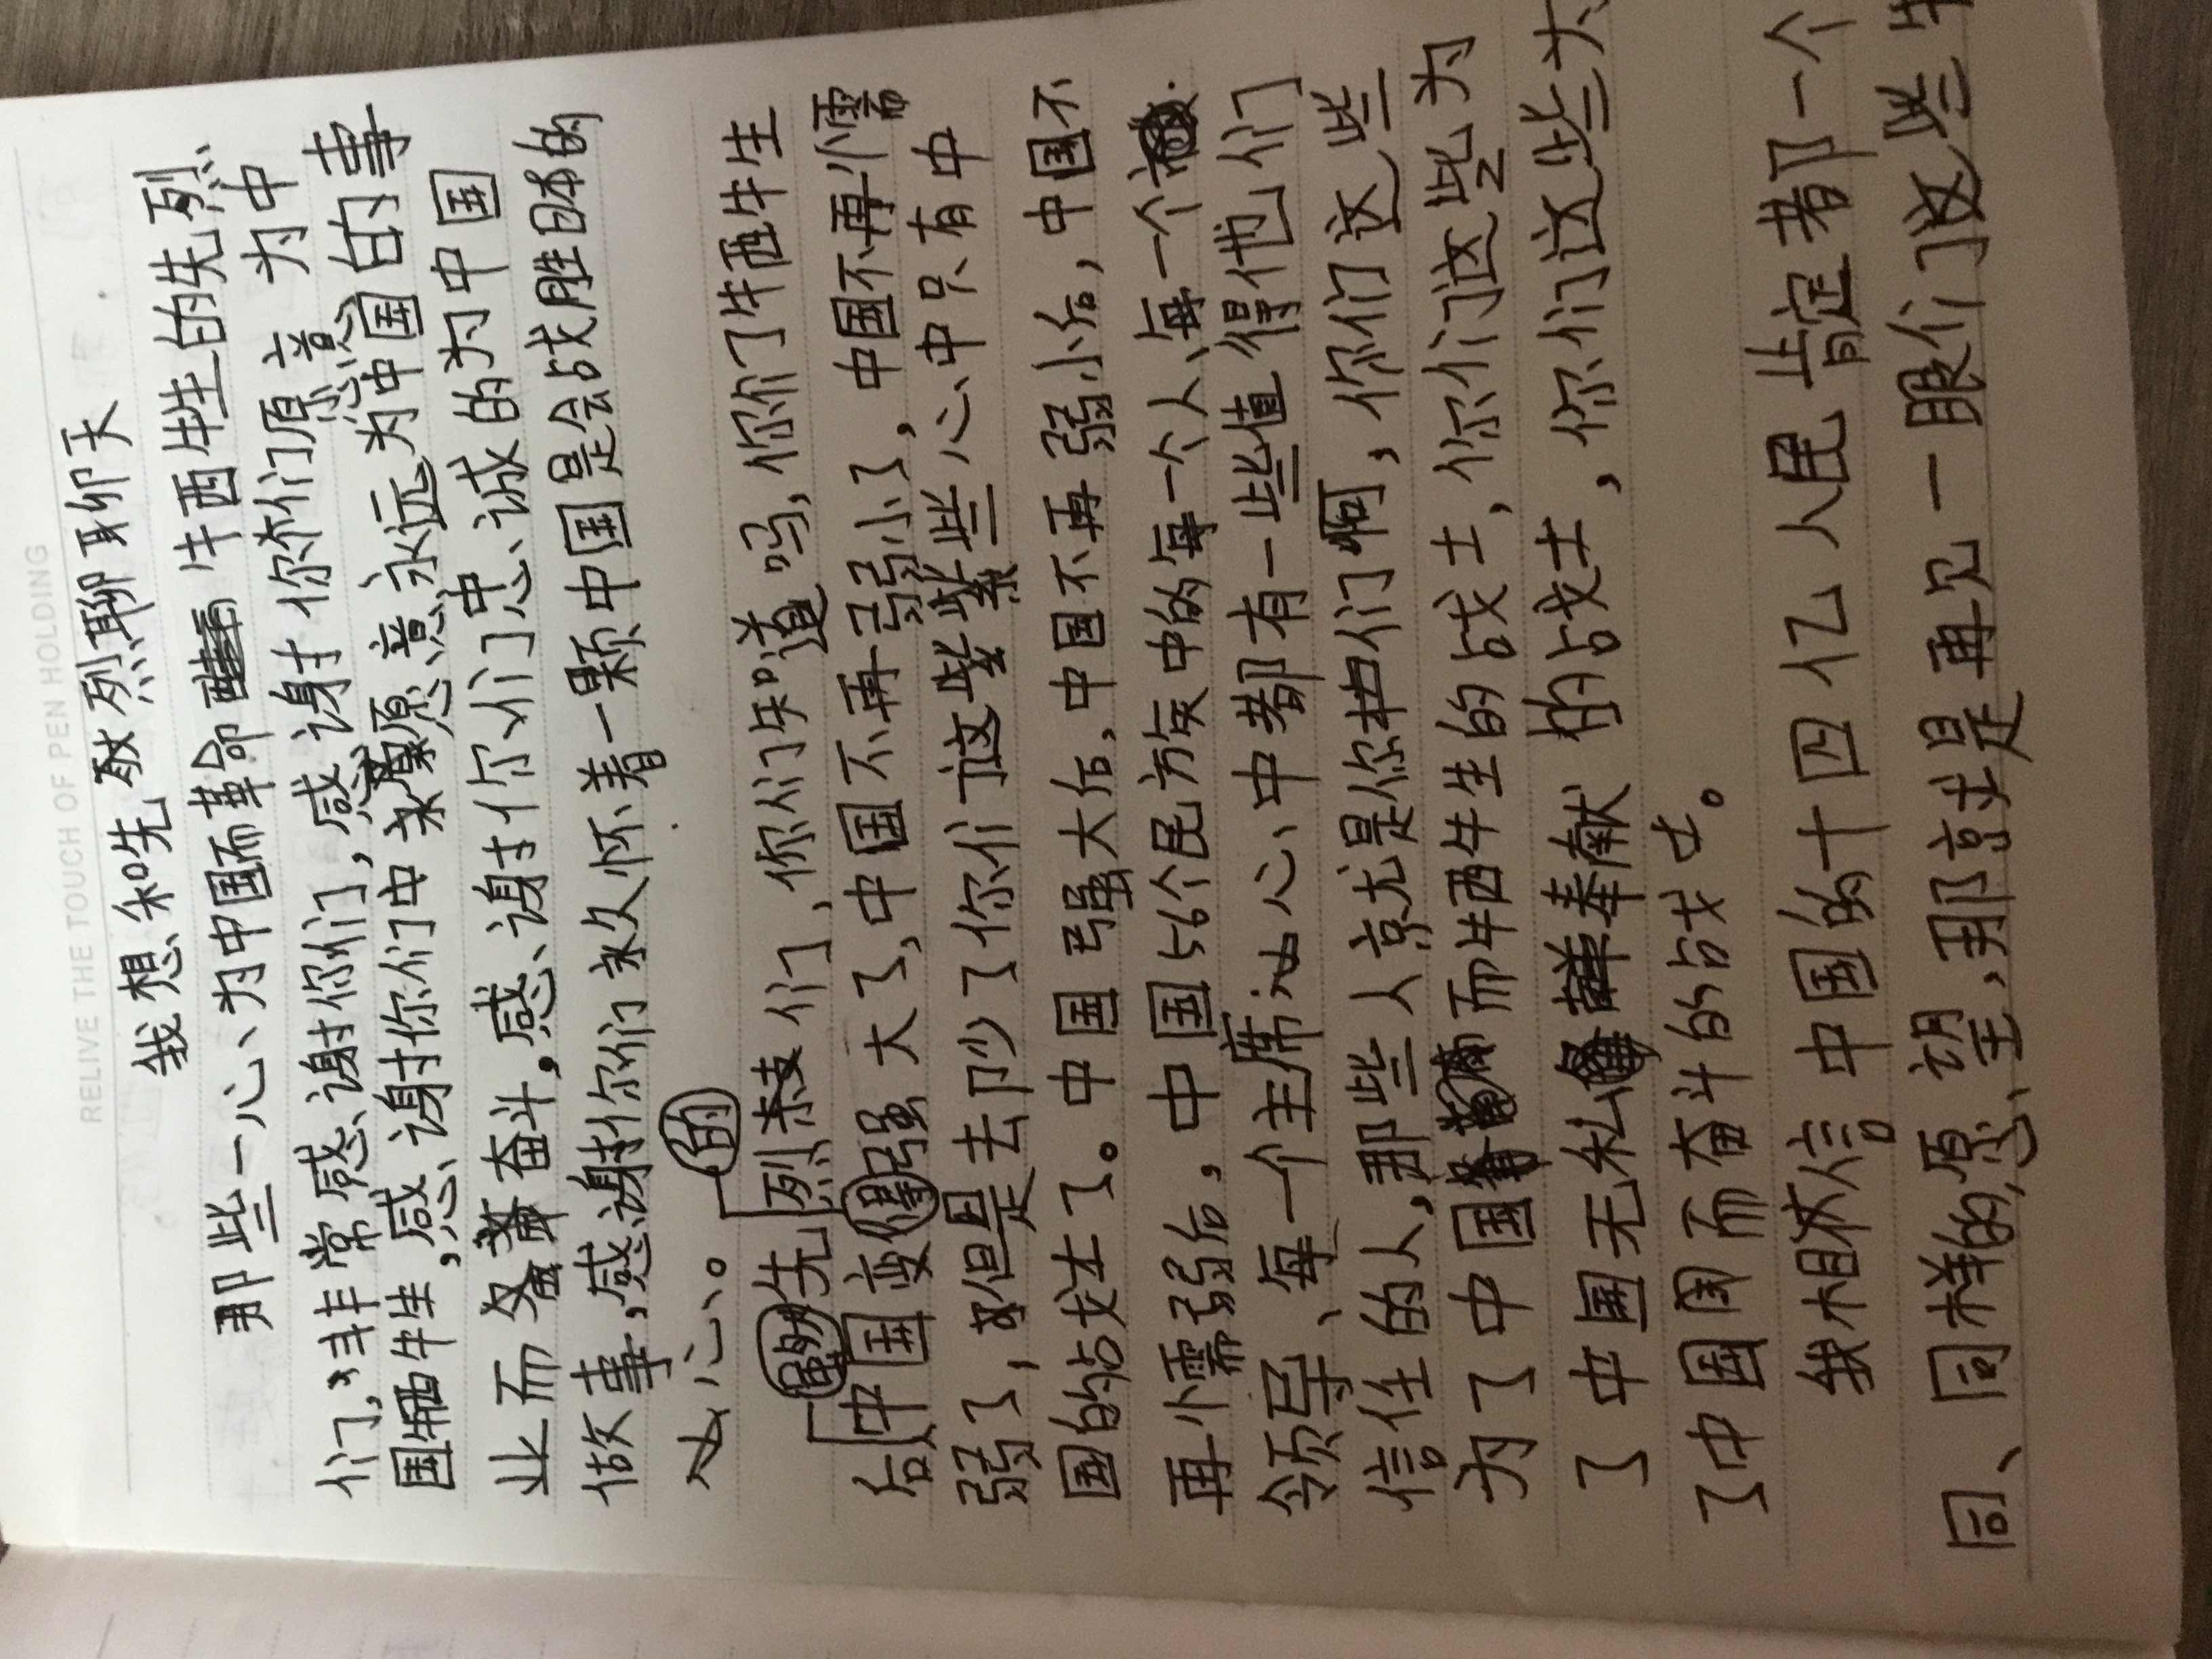 RELIVE THE TOUCH OF PEN HOLDING
我想和先烈聊聊天
那些一心为中国而革命牺牲的先烈
们，非常感谢你们，感谢你们愿意为中
国牺牲，感谢你们愿意永远为中国的事
业而奋斗，感谢你们忠诚的为中国
做故事，感谢你们永久怀着一颗中国是会战胜日本的
心。
先烈们，你们知道吗，你们了牺牲
后的中国变强大了，中国不再弱小了，中国不再懦
弱了，但是去却少了你们这些心中只有中
国的战士了。中国强大后，中国不再弱小后，中国不
再懦弱后，中国56个民族中的每一个人、每一个
领导、每一个主席心中都有一些值得他们
信任的人，那些人就是你们啊，你们这些
为了中国而牺牲的战士，你们这些为
了中国无私奉献的战士，你们这些为
了中国而奋斗的战士。
我相信中国的十四亿人民肯定都一个
同、同样的愿望，那就是再见一眼们这些